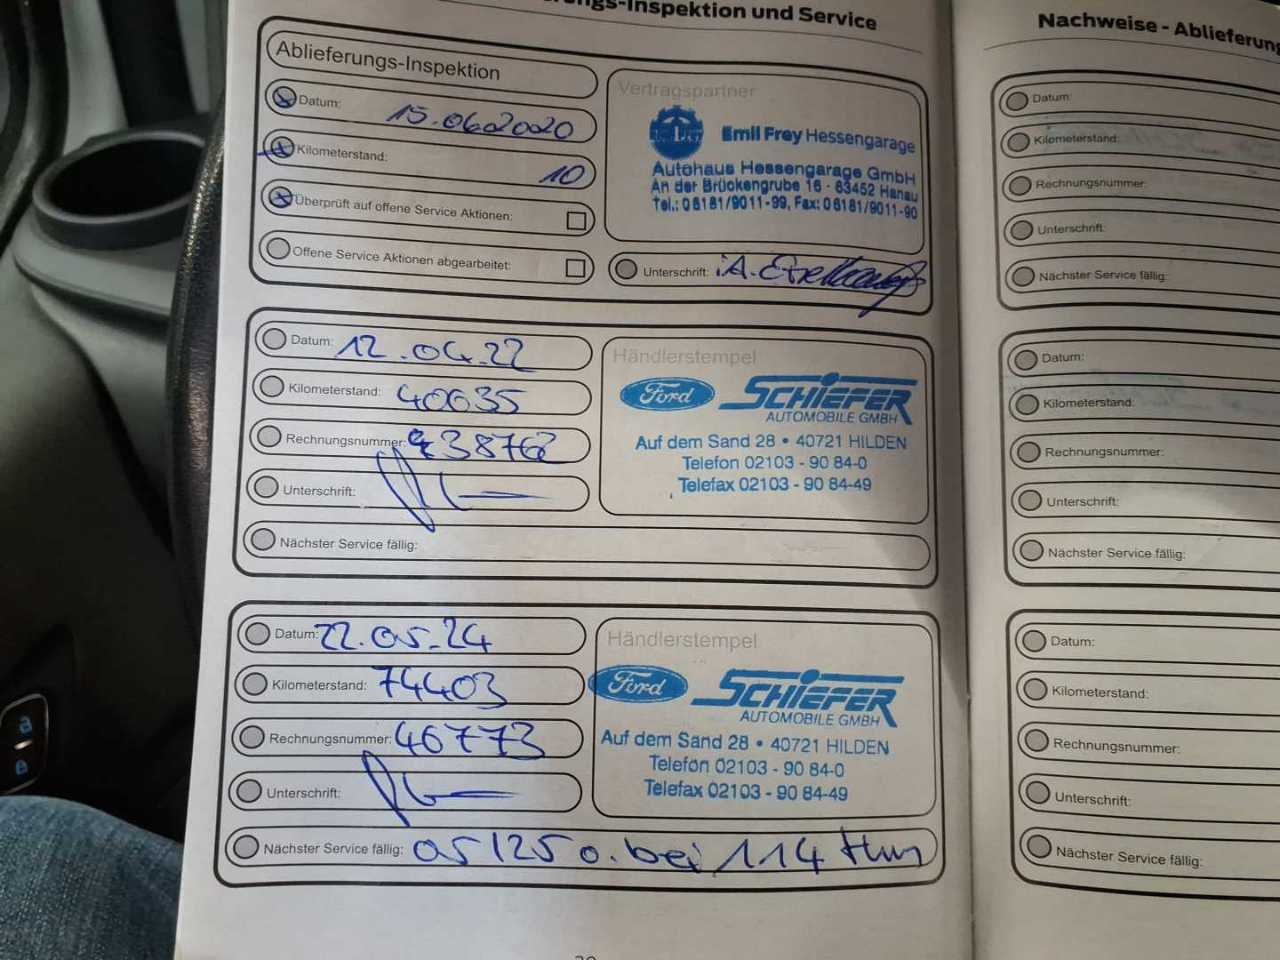 rungs-Inspektion und Service
Ablieferungs-Inspektion
Datum: 15.06.2020
Kilometerstand: 10
Überprüft auf offene Service Aktionen:
Offene Service Aktionen abgearbeitet:
Vertragspartner
Emil Frey Hessengarage
Autohaus Hessengarage GmbH
An der Brückengrube 16 - 63452 Hanau
Tel.: 06181/9011-99, Fax: 06181/9011-90
Unterschrift: i.A.
Datum: 12.04.22
Kilometerstand: 40035
Rechnungsnummer: 438762
Unterschrift:
Nächster Service fällig:
Händlerstempel
Ford SCHIEFER
AUTOMOBILE GMBH
Auf dem Sand 28 • 40721 HILDEN
Telefon 02103 - 90 84-0
Telefax 02103 - 90 84-49
Datum: 22.05.24
Kilometerstand: 74403
Rechnungsnummer: 46773
Unterschrift:
Nächster Service fällig: 05/25 o. bei 114 tkm
Händlerstempel
Ford SCHIEFER
AUTOMOBILE GMBH
Auf dem Sand 28 • 40721 HILDEN
Telefon 02103 - 90 84-0
Telefax 02103 - 90 84-49
Nachweise - Ablieferung
Datum:
Kilometerstand:
Rechnungsnummer:
Unterschrift:
Nächster Service fällig:
Datum:
Kilometerstand:
Rechnungsnummer:
Unterschrift:
Nächster Service fällig:
Datum:
Kilometerstand:
Rechnungsnummer:
Unterschrift:
Nächster Service fällig: